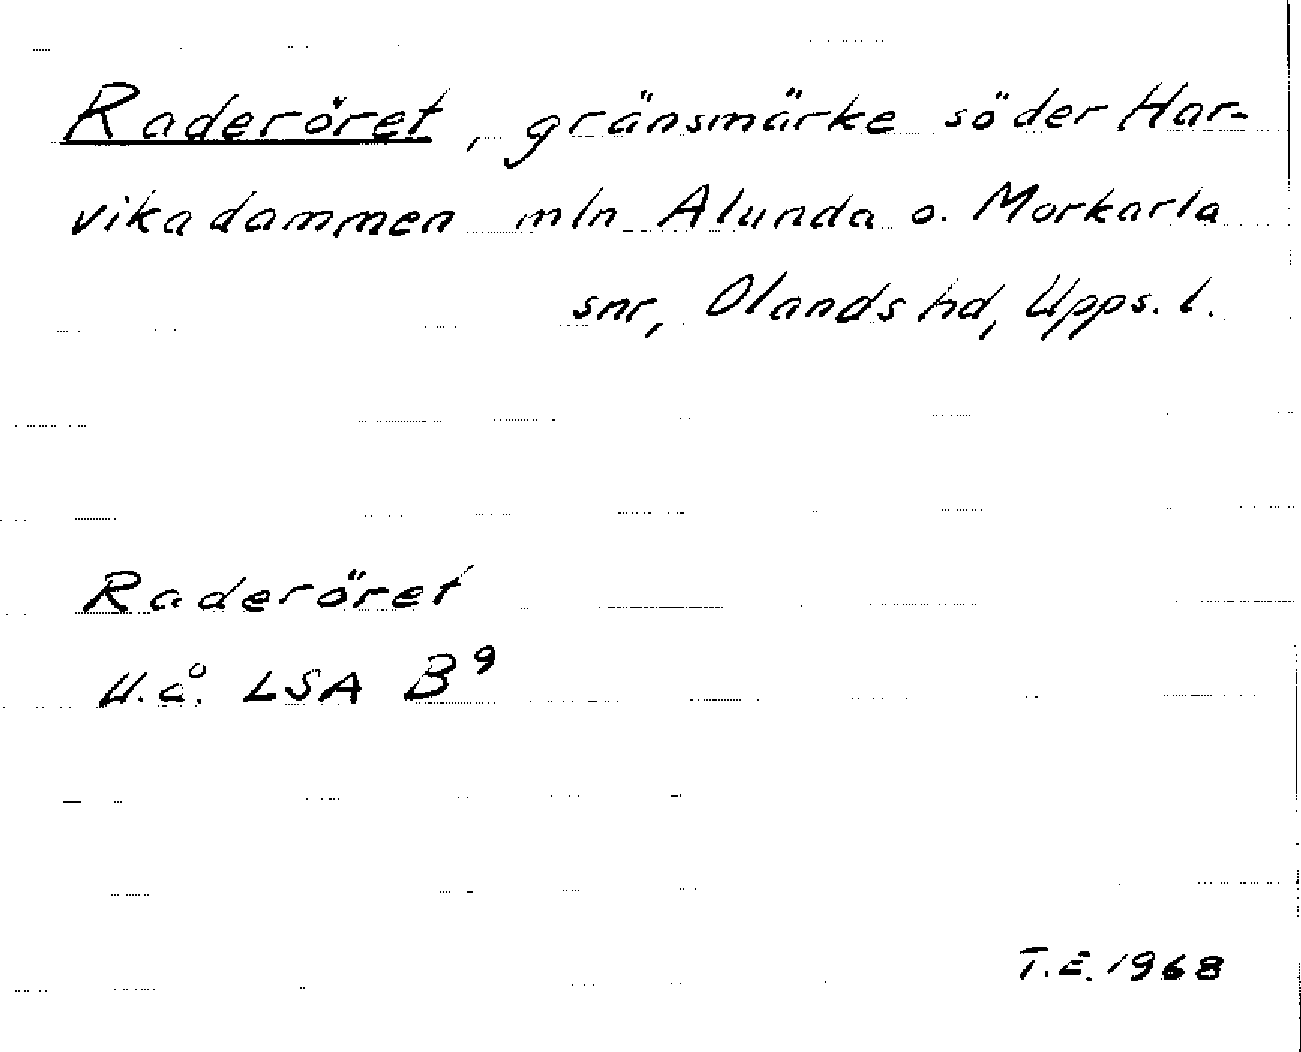 Raderöret, gränsmärke söder Har-
vikadammen mln Alunda o. Morkarla
snr, Olands hd, Upps. l.
Raderöret
U.å. LSA B⁹
T.E. 1968